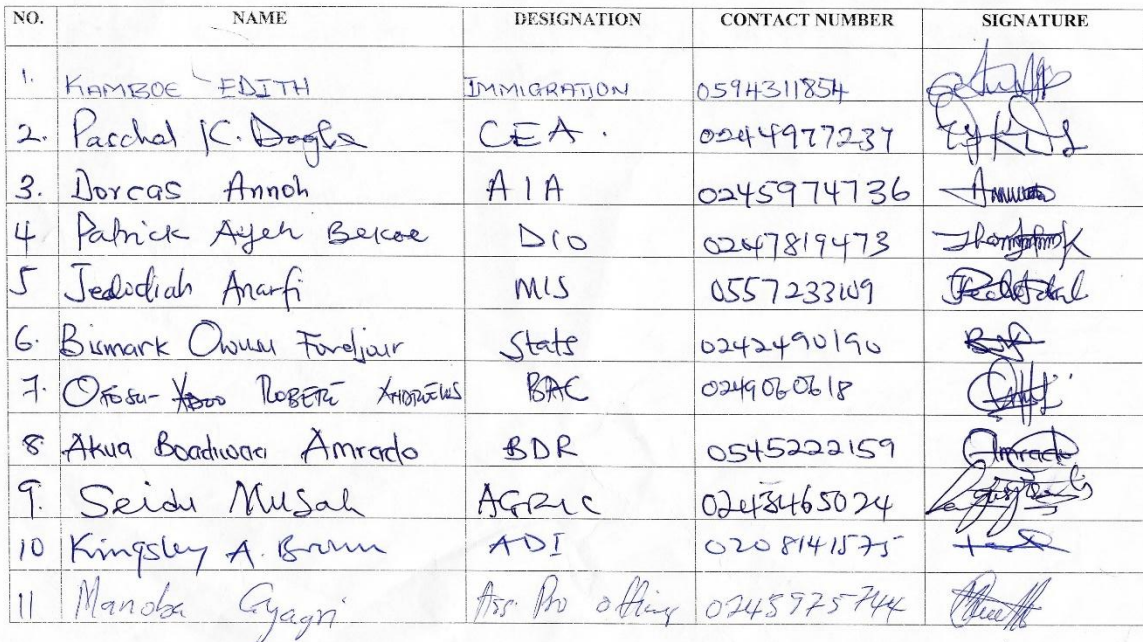 NO. NAME DESIGNATION CONTACT NUMBER SIGNATURE
1. KAMBOE EDITH IMMIGRATION 0594311854
2. Paschal K. CEA. 0244977237
3. Dorcas Annoh AIA 0245974736
4 Patrick Ayeh Bekoe DIO 0247819473
5 Jedidiah Anarfi MIS 0557233109
6. Bismark Owusu Fordjour Stats 0242490190
7. OFOSU- ROBERT ANDREWS BAC 0249060618
8 Akua Boadiwaa Amrado BDR 0545222159 Amrado
9. Seidu Musah AGRIC 0243465024
10 Kingsley A. Brown ADI 0208141575
11 Manoba Gyagri Ass. Pro 0245975744